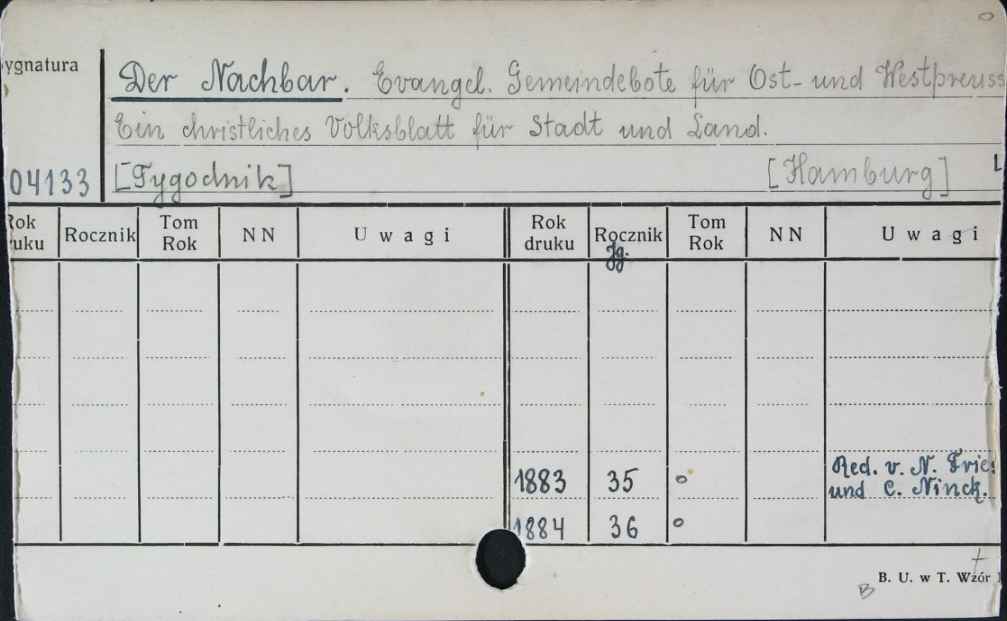 ygnatura
Der Nachbar. Evangel. Gemeindebote für Ost- und Westpreuss
Ein christliches Volksblatt für Stadt und Land.
04133 [Tygodnik] [Hamburg] L
Rok druku Rocznik Tom Rok NN Uwagi Rok druku Rocznik Tom Rok NN Uwagi
Jg.
1883 35 o Red. v. N. Fries
und C. Ninck.
1884 36 o
B. U. w T. Wzór
B